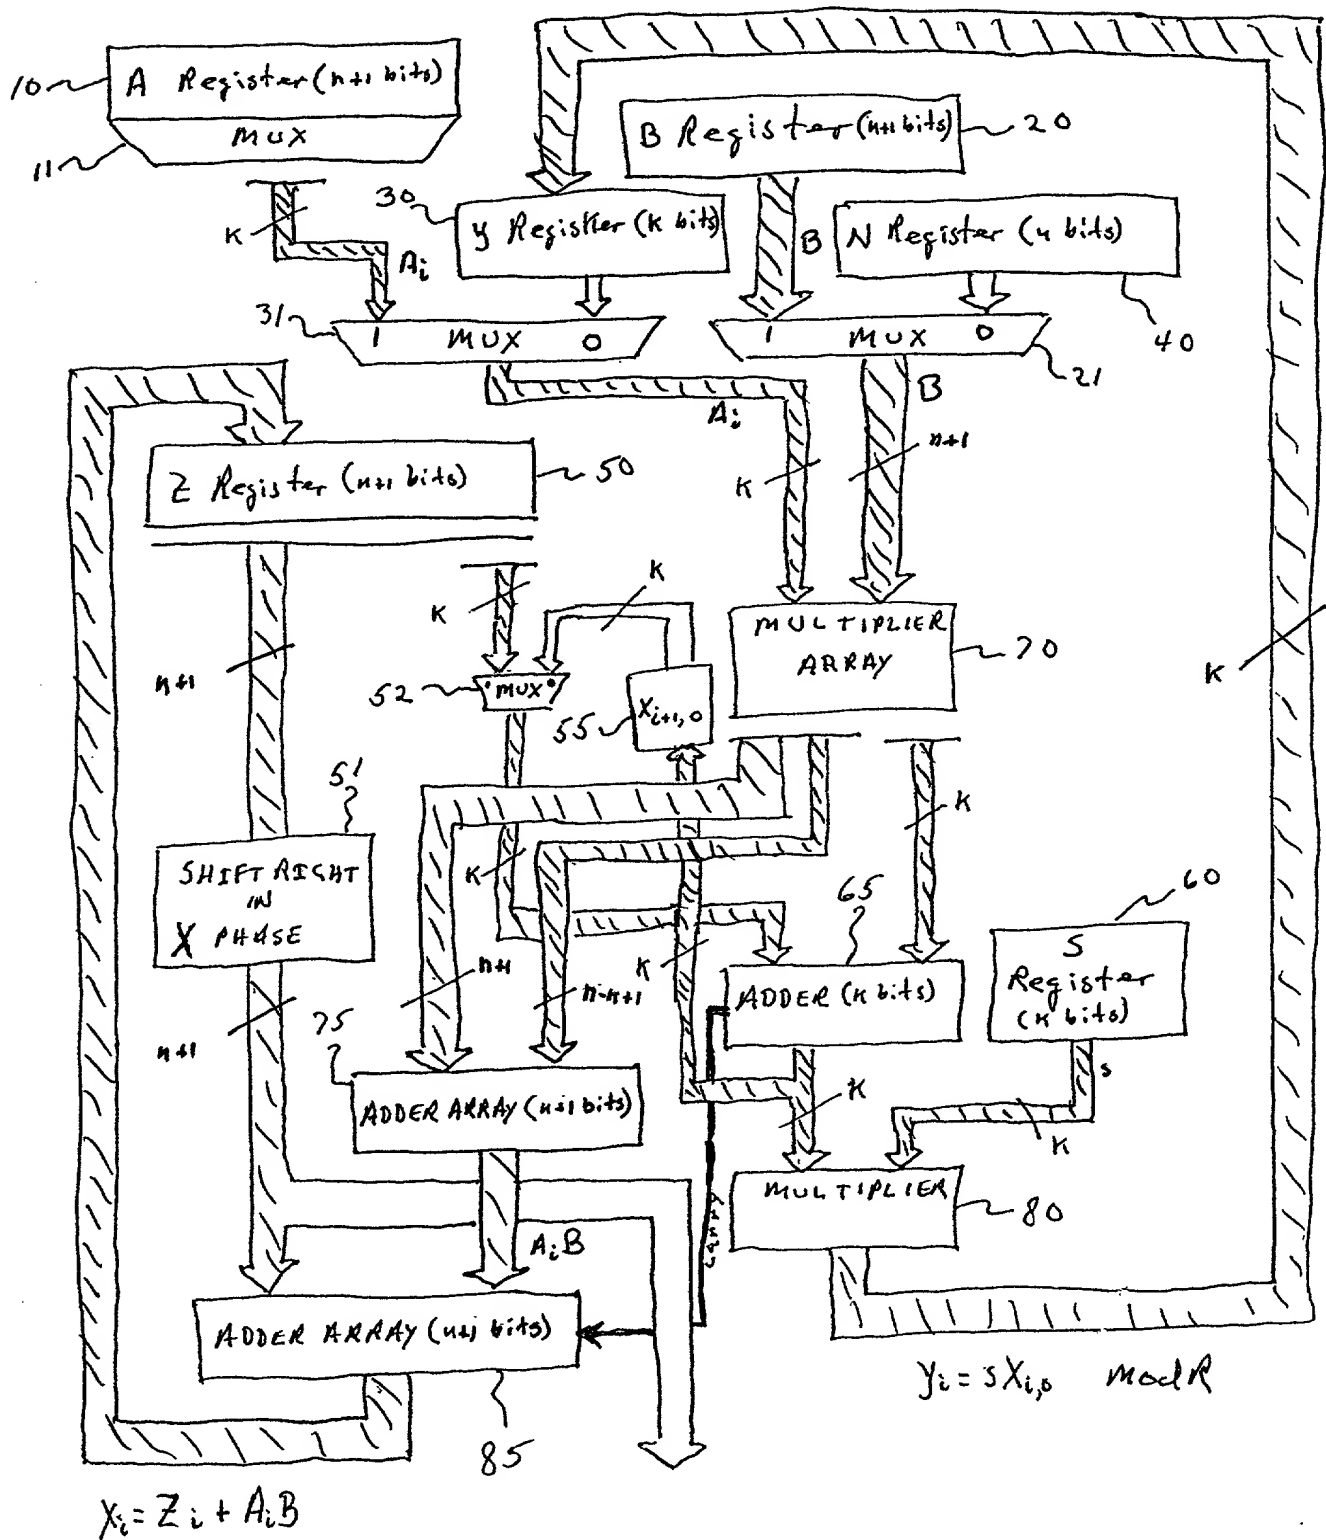 10 A Register (n+1 bits)
11 MUX
B Register (n+1 bits) 20
K
Ai
30
Y Register (K bits)
B
N Register (n bits)
40
31
1 MUX 0
1 MUX 0
21
Ai
B
n+1
K
Z Register (n+1 bits) 50
K
K
n+1
52 MUX
55 Xi+1,0
MULTIPLIER
ARRAY
70
K
51
SHIFT RIGHT
IN
X PHASE
K
K
65
60
n+1
n-k+1
K
ADDER (K bits)
S
Register
(K bits)
n+1
75
ADDER ARRAY (n+1 bits)
K
s
K
MULTIPLIER
80
carry
AiB
ADDER ARRAY (n+1 bits)
85
yi = sXi,0 mod R
Xi = Zi + AiB